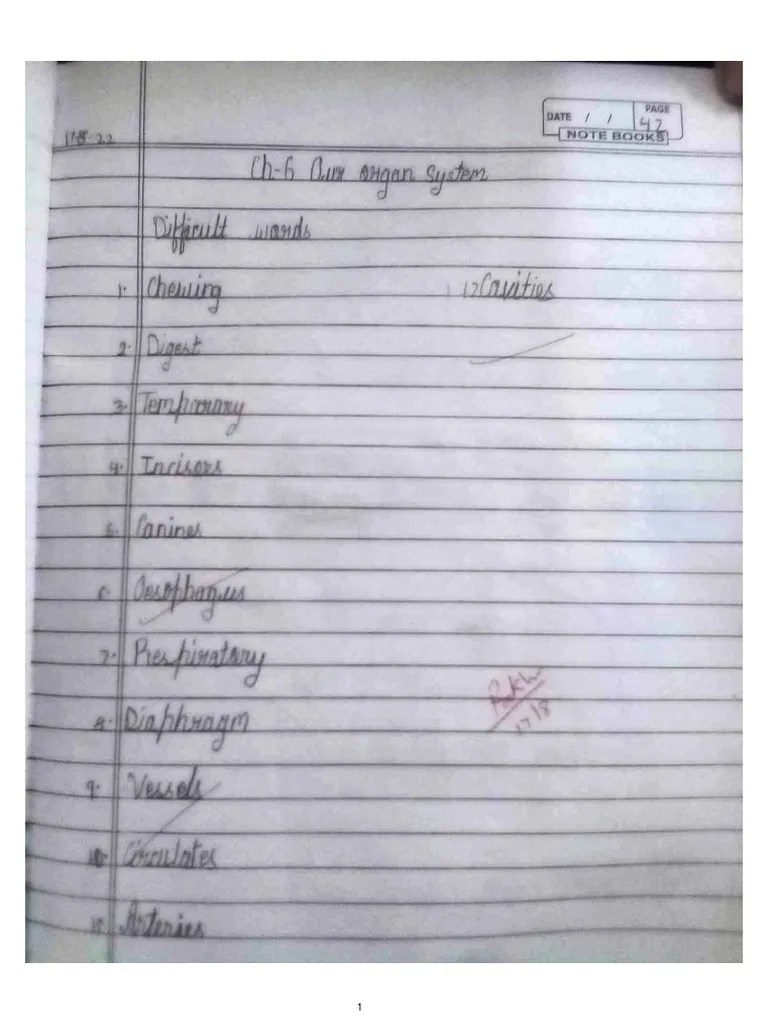 DATE / / PAGE 42
NOTE BOOKS
17-8-22
Ch-6 Our organ System
Difficult words
1. Chewing
12 Cavities
2. Digest
3. Temporary
4. Incisors
5. Canines
6. Oesophagus
7. Respiratory
8. Diaphragm
9. Vessels
10. Circulates
Arteries
17/8
1